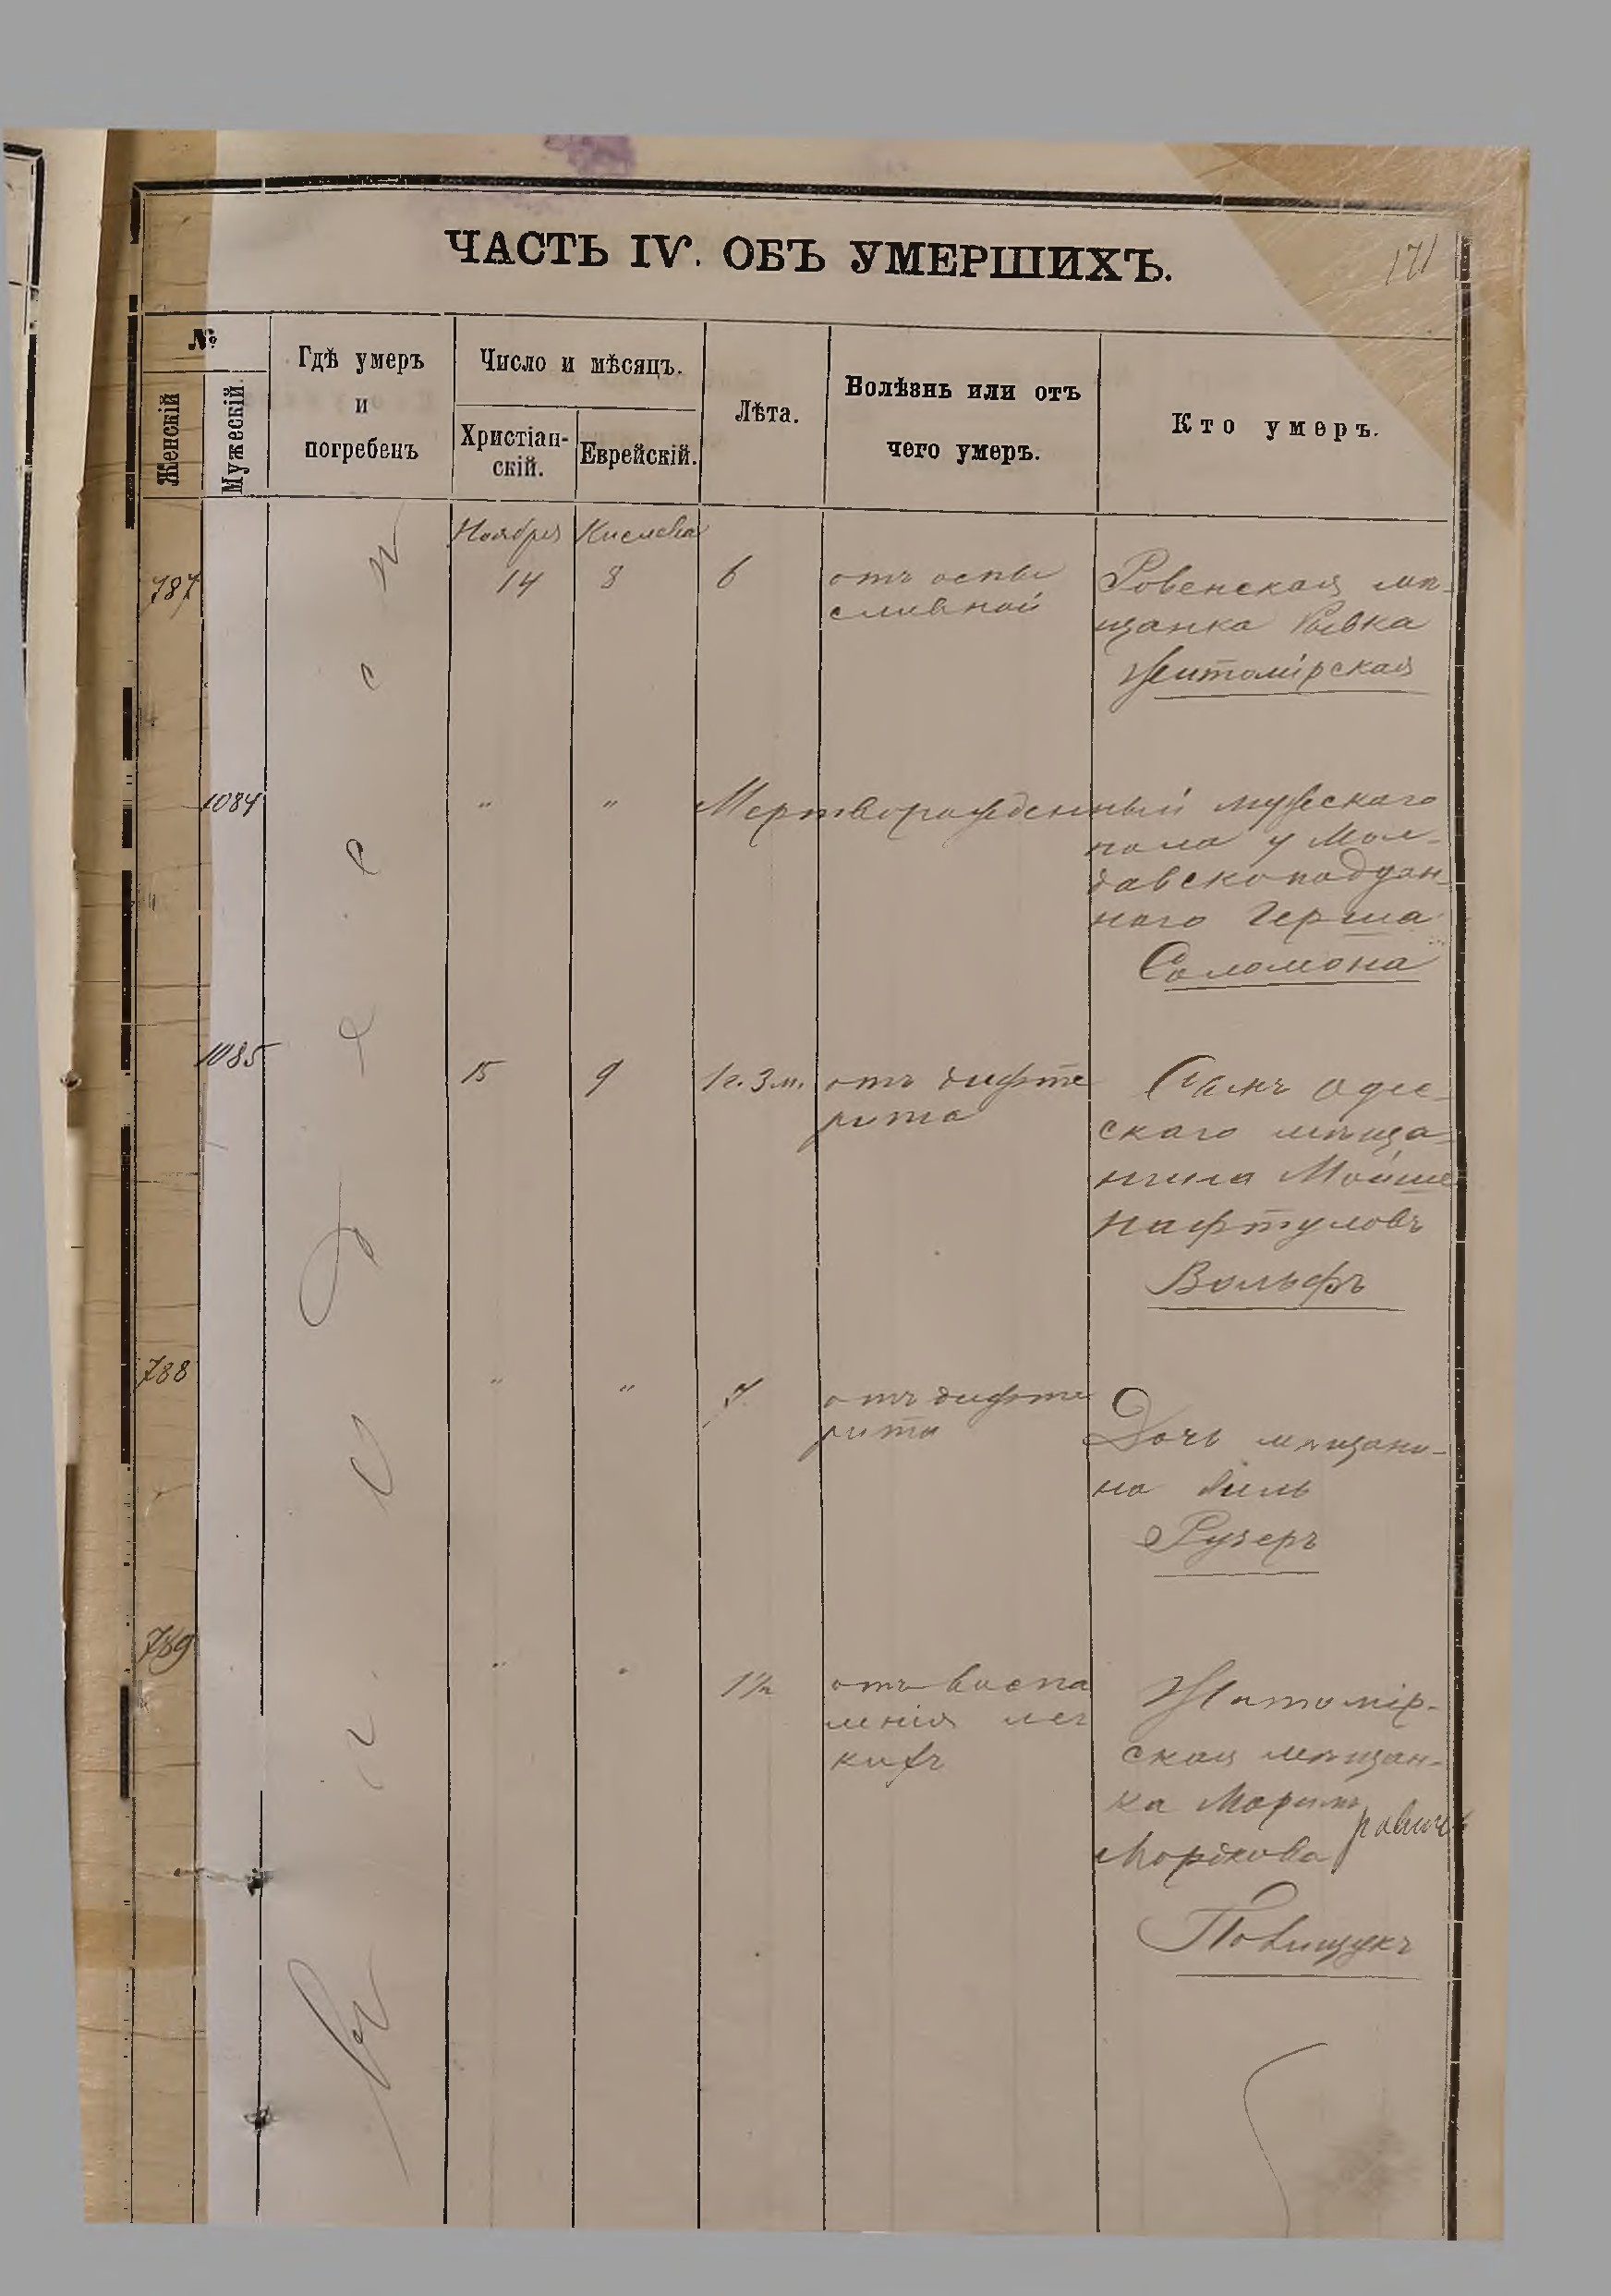 171
ЧАСТЬ IV. ОБЪ УМЕРШИХЪ.
№
Женскій
Мужескій
Гдѣ умеръ
и
погребенъ
Число и мѣсяцъ.
Христіан-
скій.
Еврейскій.
Лѣта.
Болѣзнь или отъ
чего умеръ.
Кто умеръ.
Въ г. Одессѣ
Ноября Кислева
787 14 8 6 отъ оспы Ровенская мѣ-
сливной щанка Ривка
Житомірская
1084 " " Мертворожденный мужескаго
пола у Мол-
давскоподдан-
наго Герша
Соломона
1085 15 9 1 г. 3 м. отъ дифте Сынъ одес-
рита скаго мѣща-
нина Мойше
Нафтуловъ
Вольфъ
788 " " 7 отъ дифте
рита Дочь мѣщани-
на
Рузеръ
789 " " 1½ отъ воспа Житомір-
ленія лег ская мѣщан-
кихъ ка Маріям
Мордкова
Повищукъ